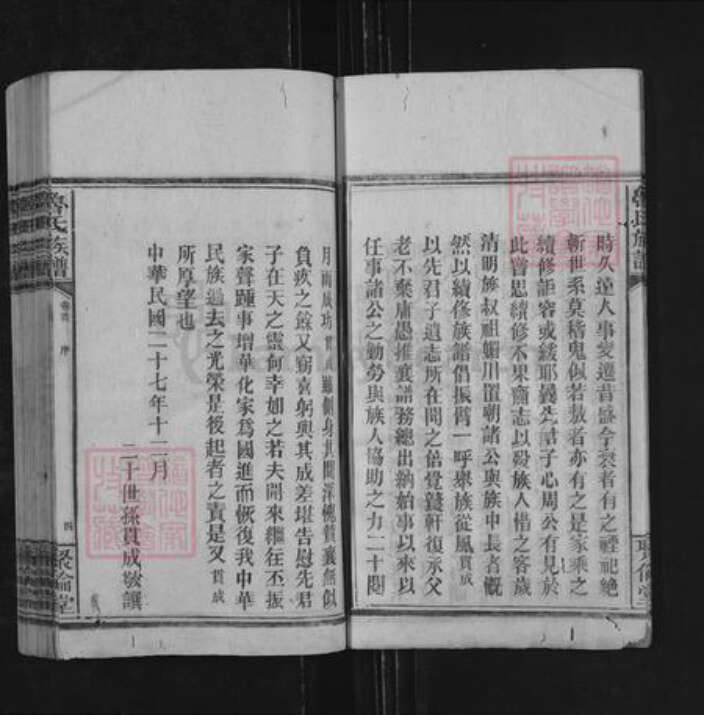 時久遠人事變遷昔盛今衰者有之禋祀絕
斬世系莫稽鬼佩若敖者亦有之是家乘之
續修詎容或緩耶曩先君子心周公有見於
此嘗思續修不果齎志以歿族人惜之客歲
清明族叔祖媚川置朝諸公與族中長者慨
然以續修族譜倡振臂一呼舉族從風貫成
以先君子遺志所在聞之倍覺軒復承父
老不棄庸愚推襄譜務總出納始事以來以
任事諸公之勤勞與族人協助之力二十閱
月而成功貫成雖側身其間深愧贊襄無似
負疚之餘又竊喜躬與其成差堪告慰先君
子在天之靈何幸如之若夫開來繼往丕振
家聲踵事增華化家為國進而恢復我中華
民族過去之光榮是後起者之責是又貫成
所厚望也
中華民國二十七年十二月
二十世孫貫成敬譔
魯氏族譜
卷首 序
四
聚倫堂